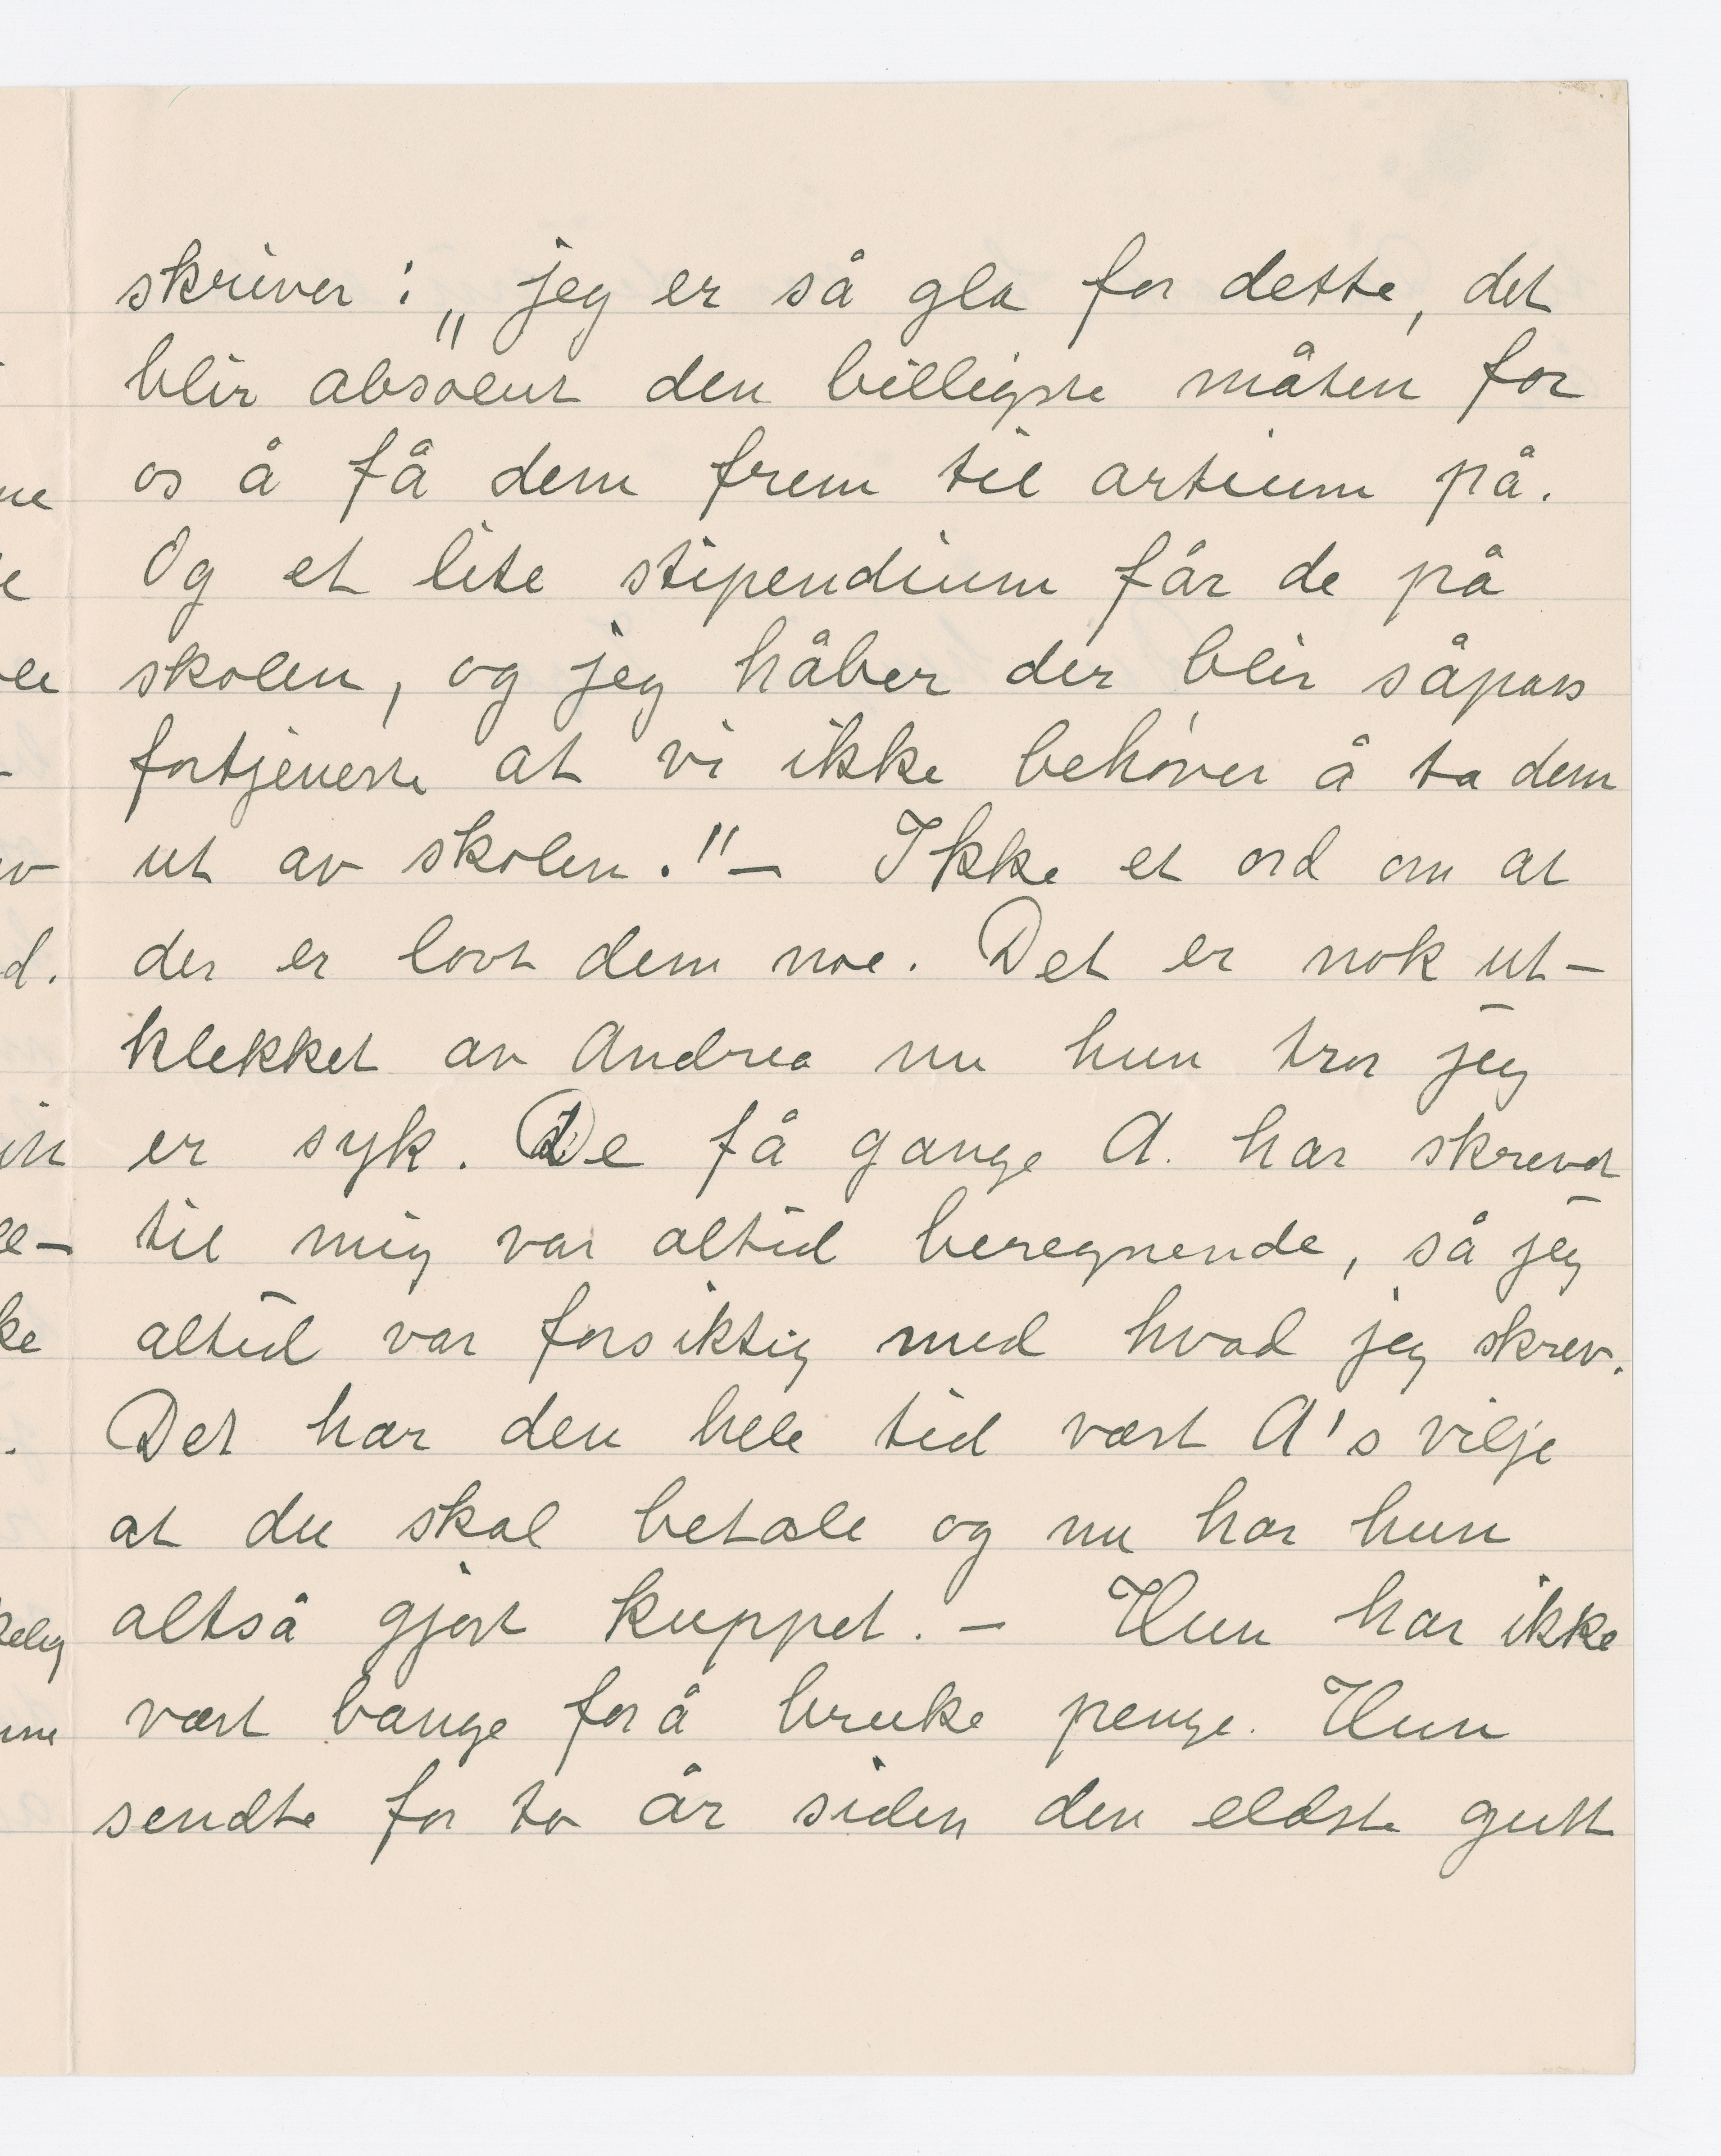 skriver : „ jeg er så gla for dette, det
blir absolut den billigste måten for
os å få dem frem til artium på.
Og et lite stipendium får de på
skolen, og jeg håber der blir såpass
fortjeneste at vi ikke behøver å ta dem
ut av skolen." — Ikke et ord om at
der er lovt dem noe. Det er nok ut-
klekket av Andrea nu hun tror jeg
er syk. De få gange A. har skrevet
til mig var altid beregnende, så jeg
altid var forsiktig med hvad jeg skrev.
Det har den hele tid vært A's vilje
at du skal betale og nu har hun
altså gjort kuppet. — Hun har ikke
vært bange for å bruke penge. Hun
sendte for to år siden den eldste gutt